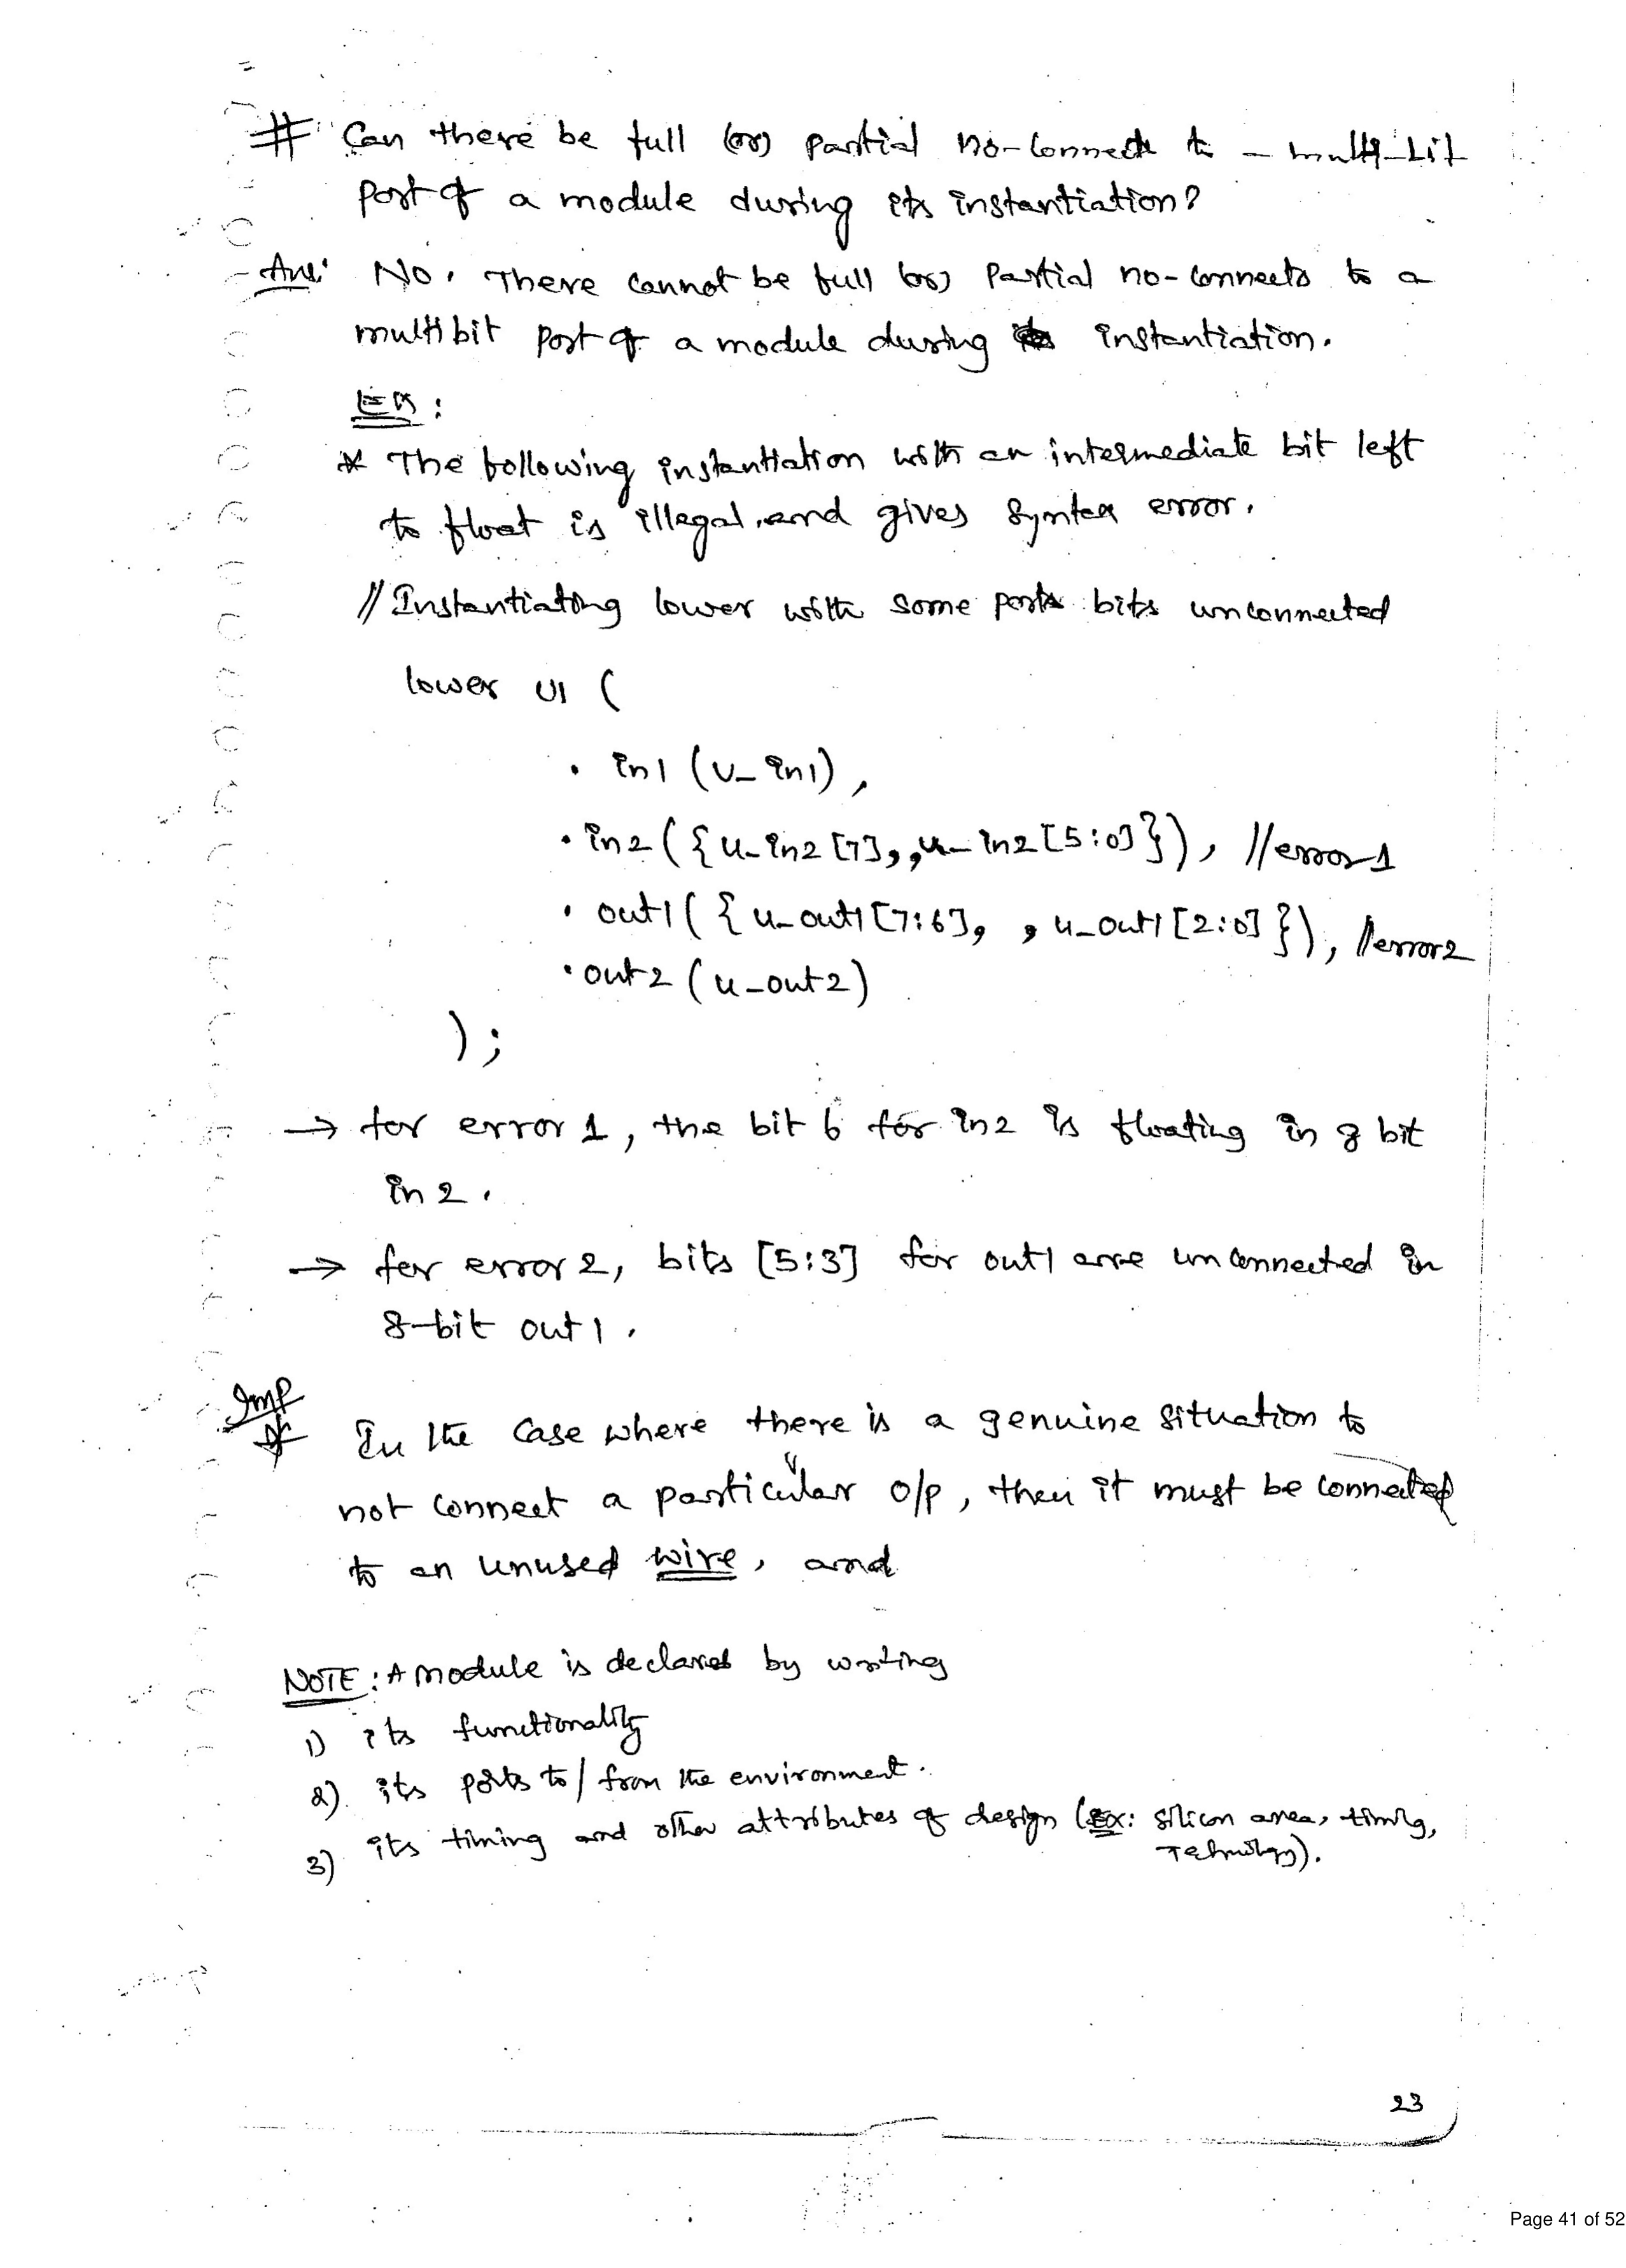 # Can there be full (or) partial no-connect to a multi-bit
port of a module during its instantiation?
Ans: No. There cannot be full (or) partial no-connects to a
multibit port of a module during instantiation.
Ex:
* The following instantiation with an intermediate bit left
to float is illegal, and gives syntax error.
// Instantiating lower with some ports bits unconnected
lower U1 (
. in1 (u_in1),
. in2 ({u_in2 [7], ,u_in2 [5:0]}), //error1
. out1 ({u_out1 [7:6], , u_out1 [2:0]}), //error2
. out2 (u_out2)
);
→ for error 1, the bit 6 for in2 is floating in 8 bit
in 2.
→ for error 2, bits [5:3] for out1 are unconnected in
8-bit out 1.
Imp
* In the case where there is a genuine situation to
not connect a particular o/p, then it must be connected
to an unused wire, and
NOTE: A module is declared by writing
1) its functionality
2) its ports to / from the environment.
3) its timing and other attributes of design (Ex: silicon area, timing,
Technology).
23
Page 41 of 52